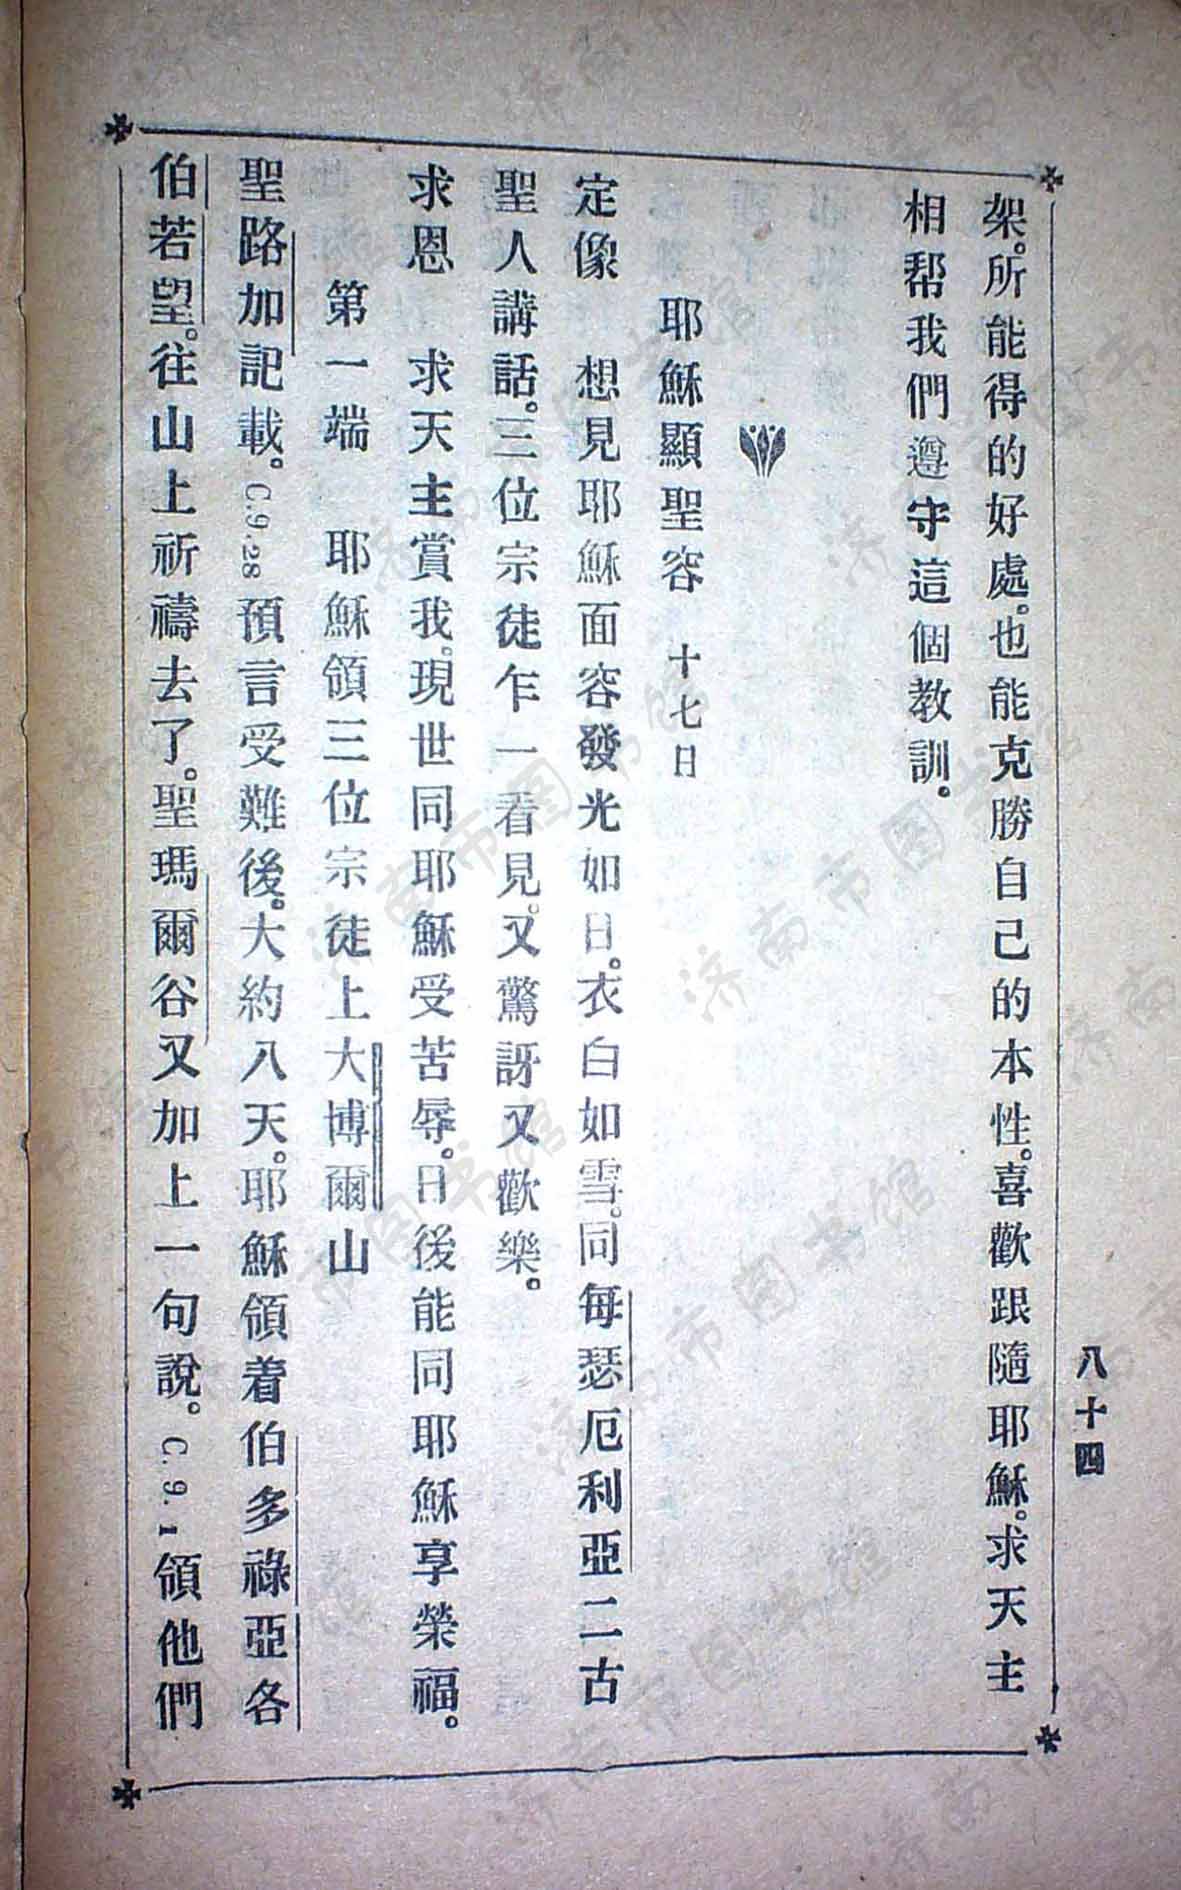 八十四
架。所能得的好處。也能克勝自己的本性。喜歡跟隨耶穌。求天主
相帮我們遵守這個教訓。
耶穌顯聖容 十七日
定像 想見耶穌面容發光如日。衣白如雪。同每瑟厄利亞二古
聖人講話。三位宗徒乍一看見。又驚訝又歡樂。
求恩 求天主賞我。現世同耶穌受苦辱。日後能同耶穌享榮福。
第一端 耶穌領三位宗徒上大博爾山
聖路加記載。C.9.28預言受難後。大約八天。耶穌領着伯多祿亞各
伯若望。往山上祈禱去了。聖瑪爾谷又加上一句說。C.9.1領他們
济南市图书馆